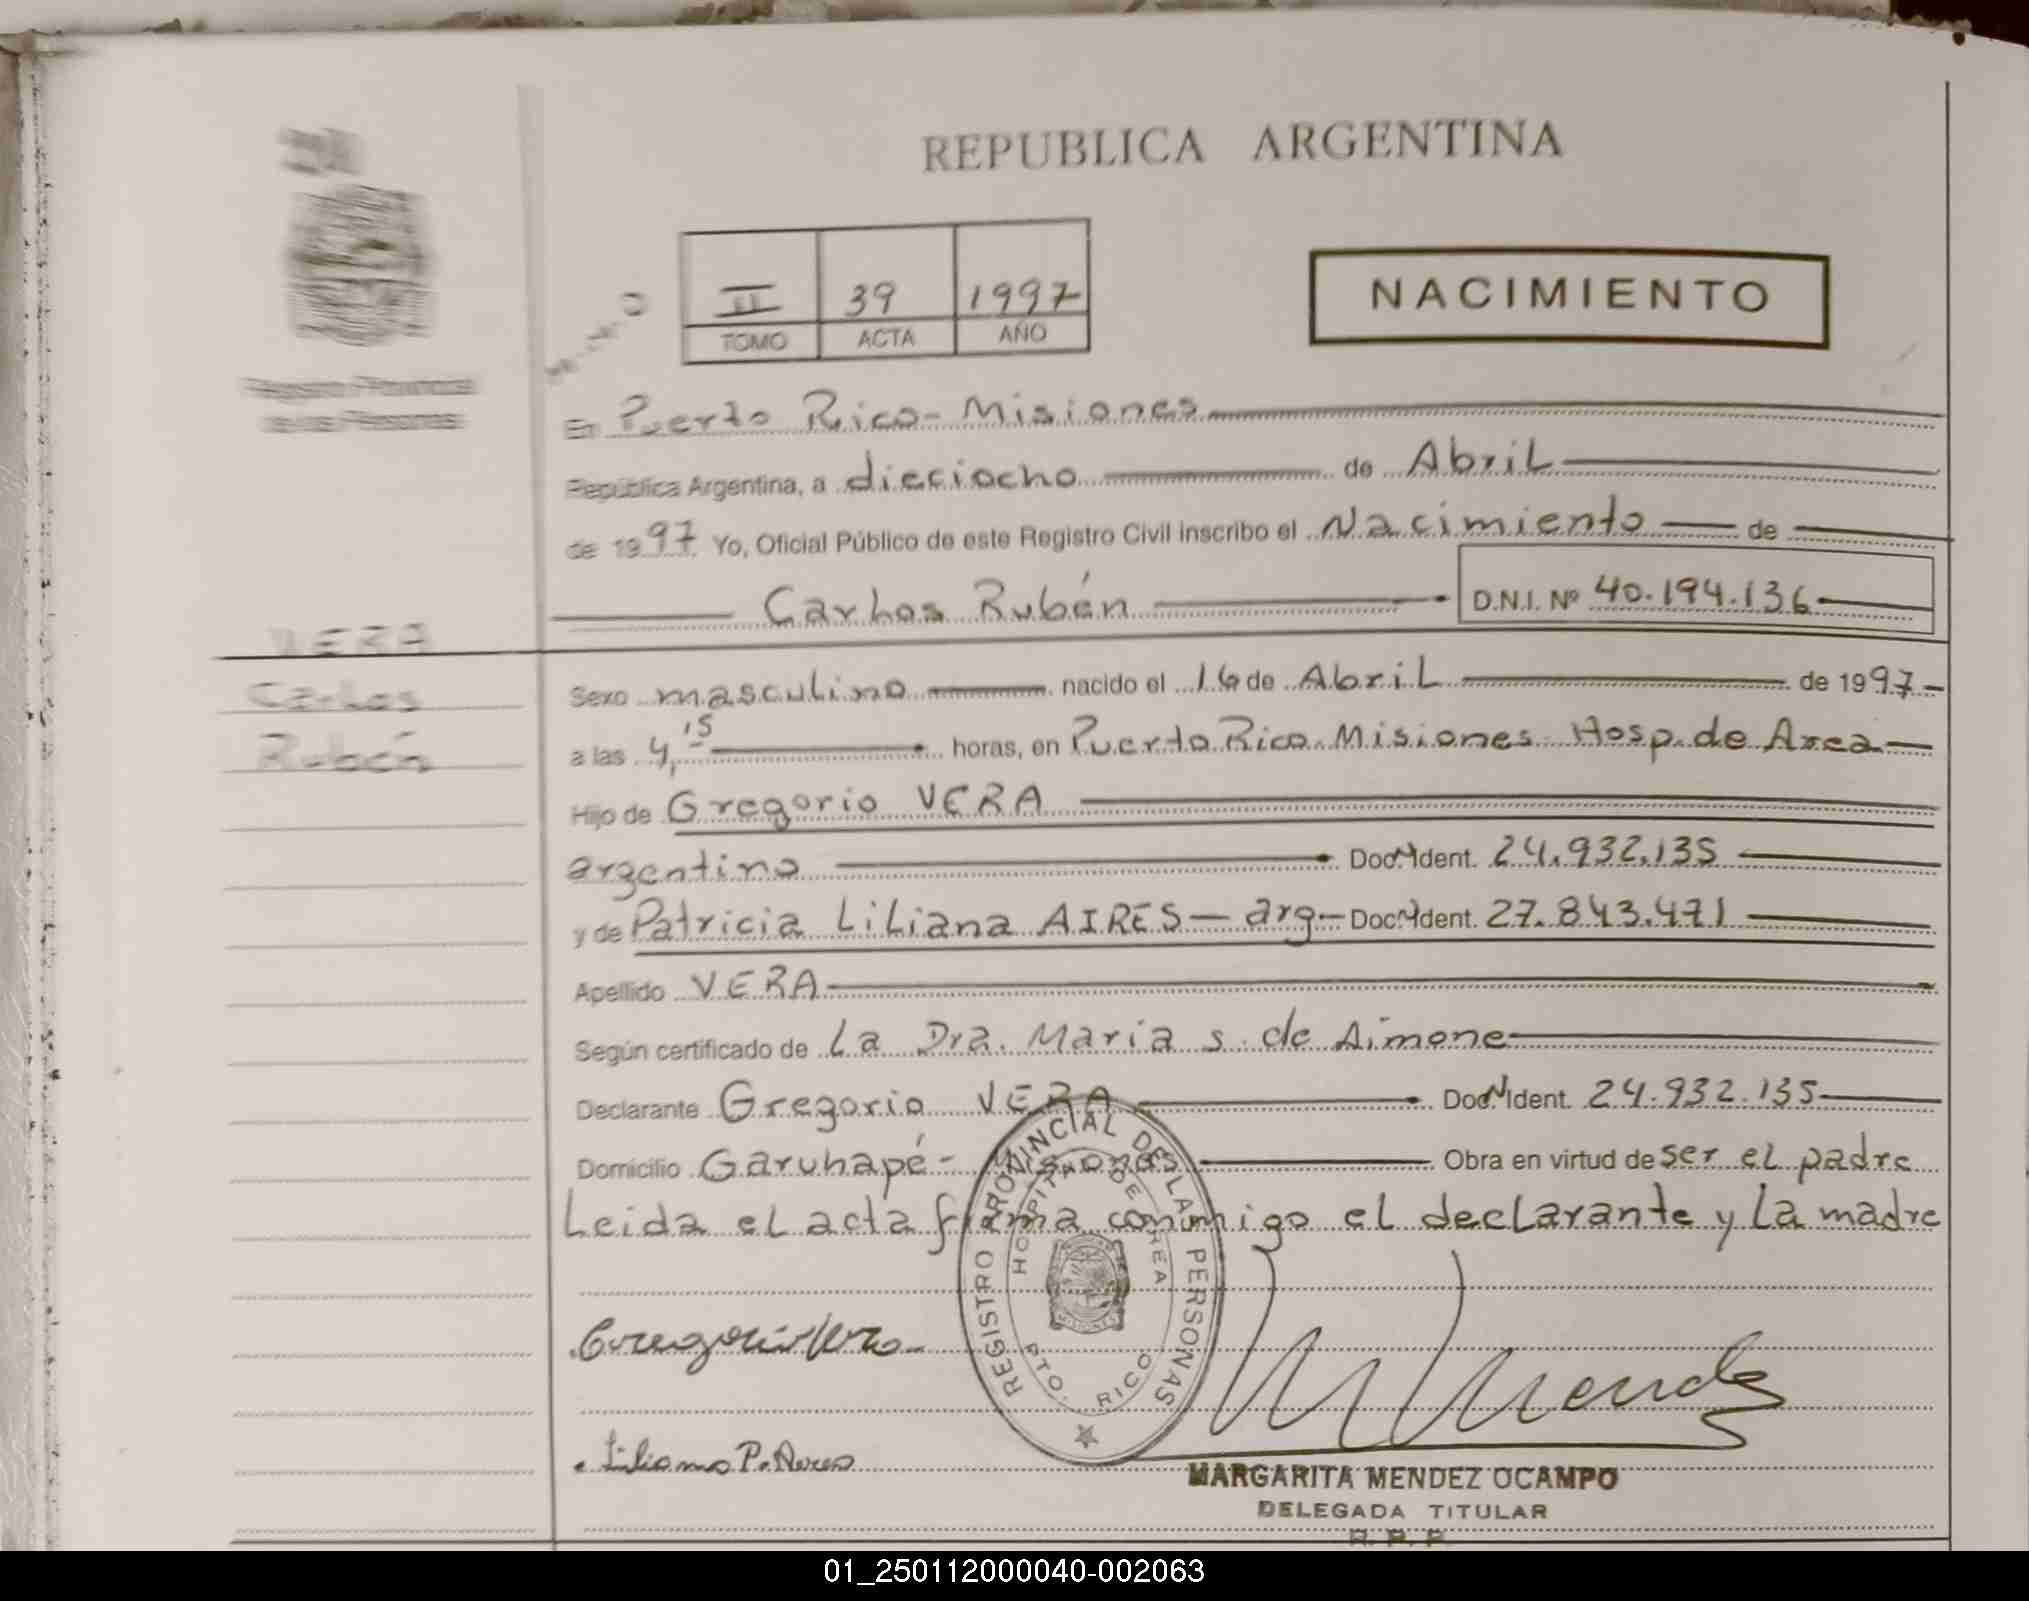 REPUBLICA ARGENTINA
II 39 1997
TOMO ACTA AÑO
NACIMIENTO
Registro Provincial
de las Personas
En Puerto Rico - Misiones
República Argentina, a dieciocho de Abril
de 1997 Yo, Oficial Público de este Registro Civil inscribo el Nacimiento de
Carlos Rubén D.N.I. Nº 40.194.136
VERA
Carlos
Rubén
Sexo masculino nacido el 16 de Abril de 1997
a las 4,15 horas, en Puerto Rico Misiones Hosp. de Area
Hijo de Gregorio VERA
argentino Doc. Ident. 24.932.135
y de Patricia Liliana AIRES - arg - Doc. Ident. 27.843.471
Apellido VERA
Según certificado de La Dra. Maria s. de Aimone
Declarante Gregorio VERA Doc. Ident. 24.932.135
Domicilio Garuhapé - Misiones Obra en virtud de ser el padre
Leida el acta firma conmigo el declarante y la madre
REGISTRO PROVINCIAL DE LAS PERSONAS
HOSPITAL DE AREA
MISIONES
PTO. RICO
Gregorio Vera
Liliana P. Aires
M Mendez
MARGARITA MENDEZ OCAMPO
DELEGADA TITULAR
R. P. P.
01_250112000040-002063